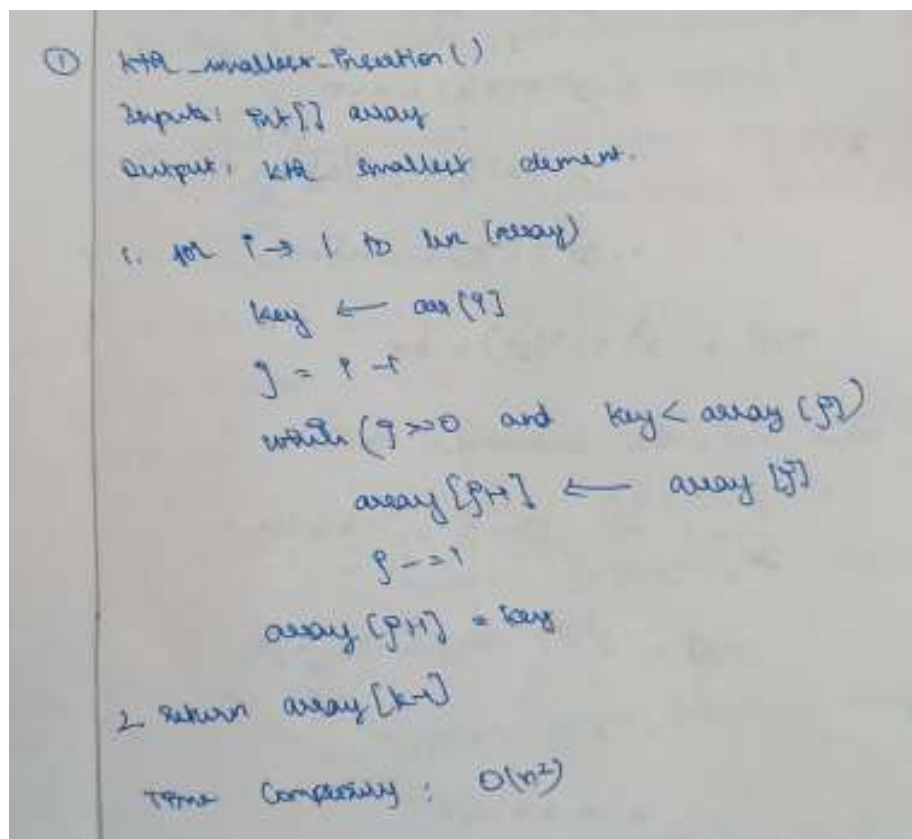 ① kth_smallest_Insertion()
Inputs: int[] array
Output: kth smallest element.
1. for i → 1 to len (array)
key ← arr[i]
j = i - 1
while (j >= 0 and key < array [j])
array [j+1] ← array [j]
j -= 1
array [j+1] = key
2. return array [k-1]
Time Complexity : O(n²)